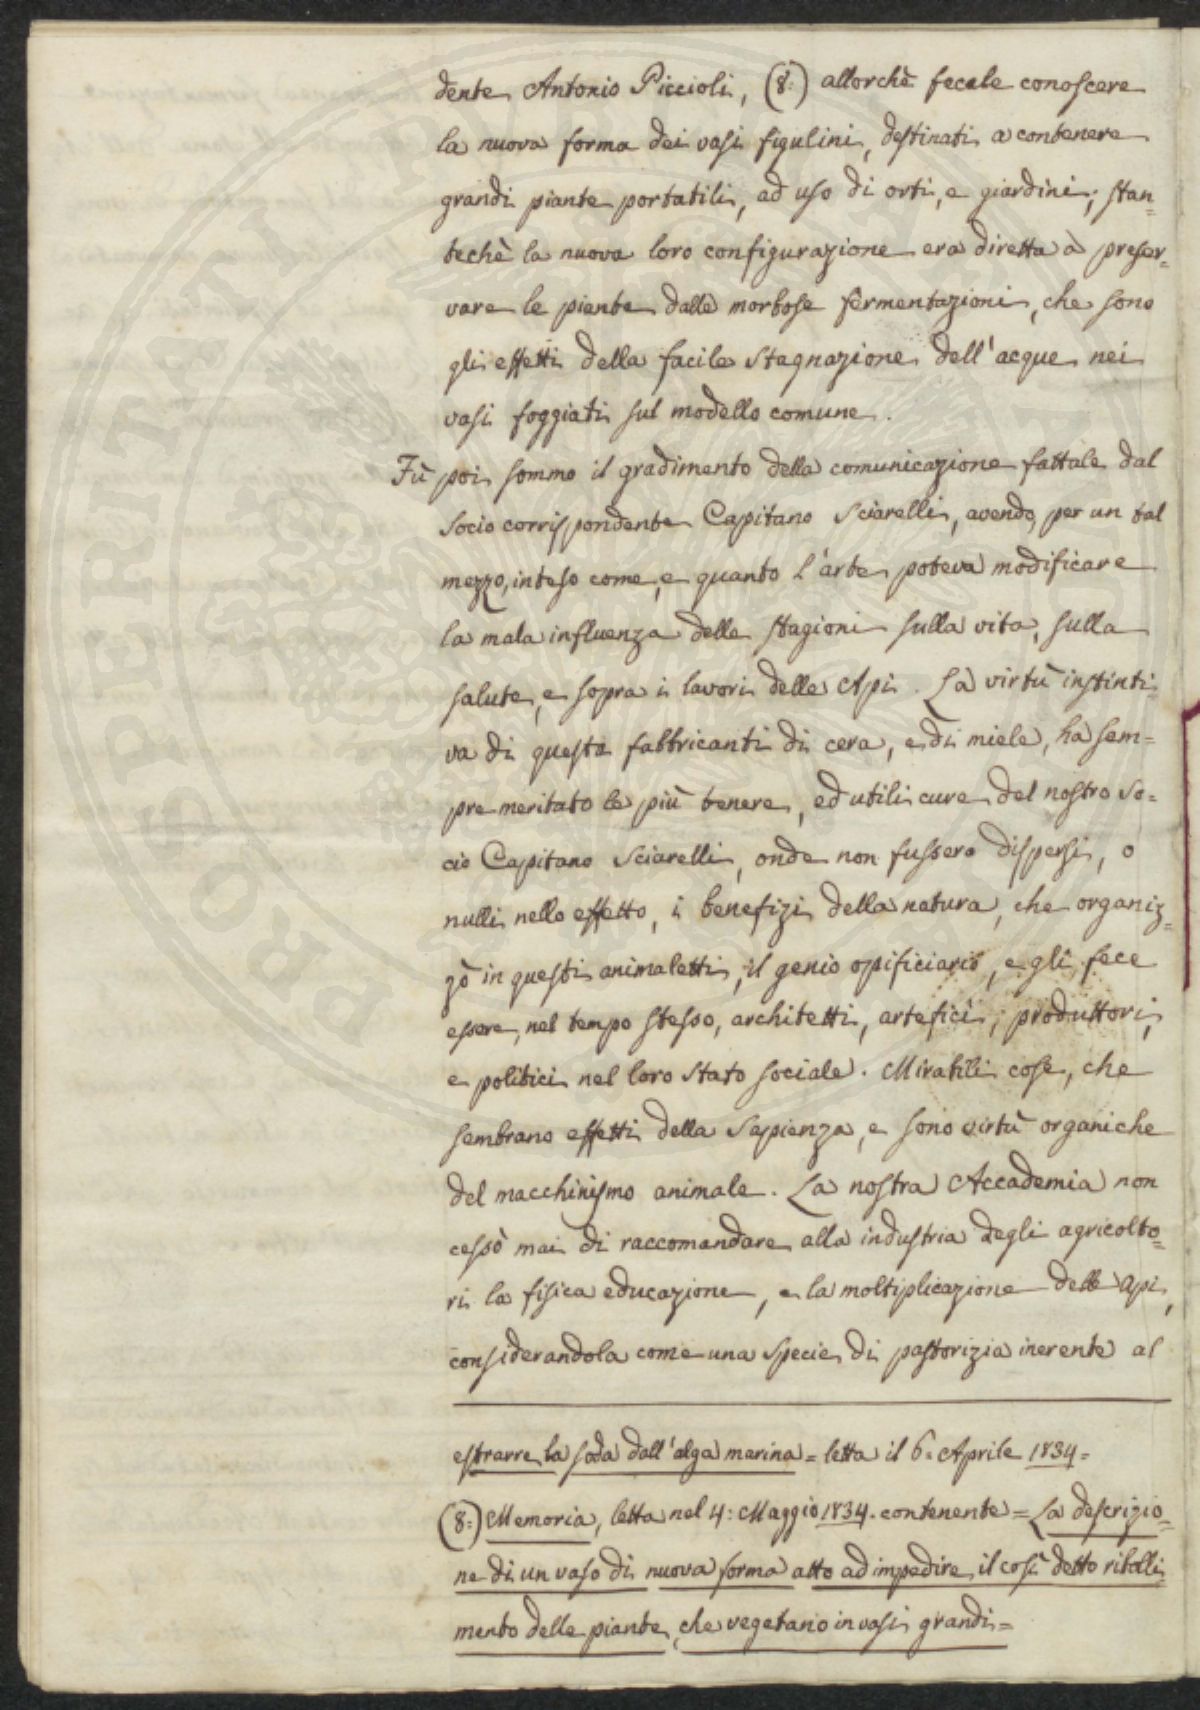 dente Antonio Piccioli, (8:) allorchè fecele conoscere
la nuova forma dei vasi figulini, destinati a contenere
grandi piante portatili, ad uso di orti, e giardini; stan=
techè la nuova loro configurazione era diretta à preser=
vare le piante dalle morbose fermentazioni, che sono
gli effetti della facile stagnazione dell'acque nei
vasi foggiati sul modello comune.
Fù poi sommo il gradimento della comunicazione fattale dal
socio corrispondente Capitano Sciarelli, avendo, per un tal
mezzo, inteso come, e quanto l'arte poteva modificare
la mala influenza delle stagioni sulla vita, sulla
salute, e sopra i lavori delle Api. La virtù instinti=
va di queste fabbricanti di cera, e di miele, ha sem=
pre meritato le più tenere, ed utili cure del nostro So=
cio Capitano Sciarelli, onde non fussero dispersi, o
nulli nello effetto, i benefizi della natura, che organiz=
zò in questi animaletti, il genio opificiario, e gli fece
essere, nel tempo stesso, architetti, artefici, produttori,
e politici nel loro stato sociale. Mirabili cose, che
sembrano effetti della Sapienza, e sono virtù organiche
del macchinismo animale. La nostra Accademia non
cessò mai di raccomandare alla industria degli agricolto=
ri la fisica educazione, e la moltiplicazione delle Api,
considerandola come una specie di pastorizia inerente al
estrarre la soda dall'alga marina = letta il 6: Aprile 1834=
(8:) Memoria, letta nel 4: Maggio 1834. contenente = La descrizio=
ne di un vaso di nuova forma atto ad impedire il così detto ribolli
mento delle piante, che vegetano in vasi grandi=
PROSPERITATI PVBLICAE